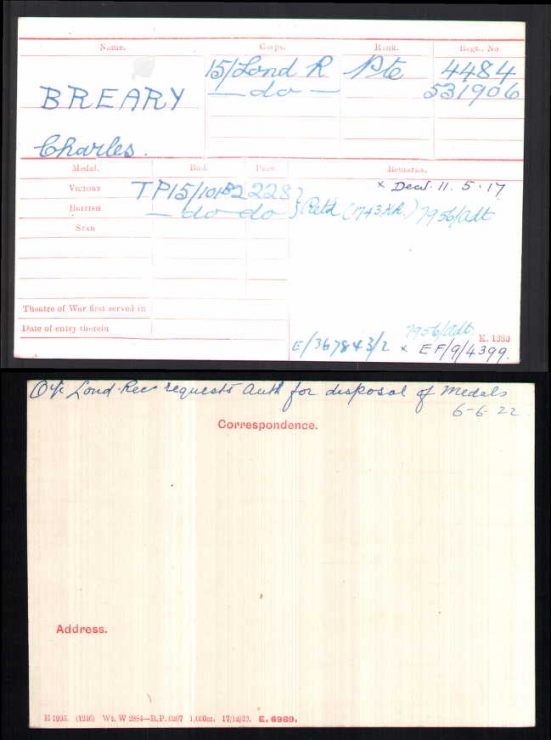 Name. Corps. Rank. Regtl. No.
BREARY 15/Lond R Pte 4484
— do — 531906
Charles.
Medal. Roll. Page. Remarks.
VICTORY TP15/101B2 2228 x Decd. 11.5.17
BRITISH — do do } Retd (743 KR.) 7956/Adt
STAR
Theatre of War first served in
Date of entry therein 7956/Adt. K. 1380
E/367843/2 x EF/9/4399.
O i/c Lond. Rec requests auth for disposal of medals
6-6-22
Correspondence.
Address.
E. 6989.